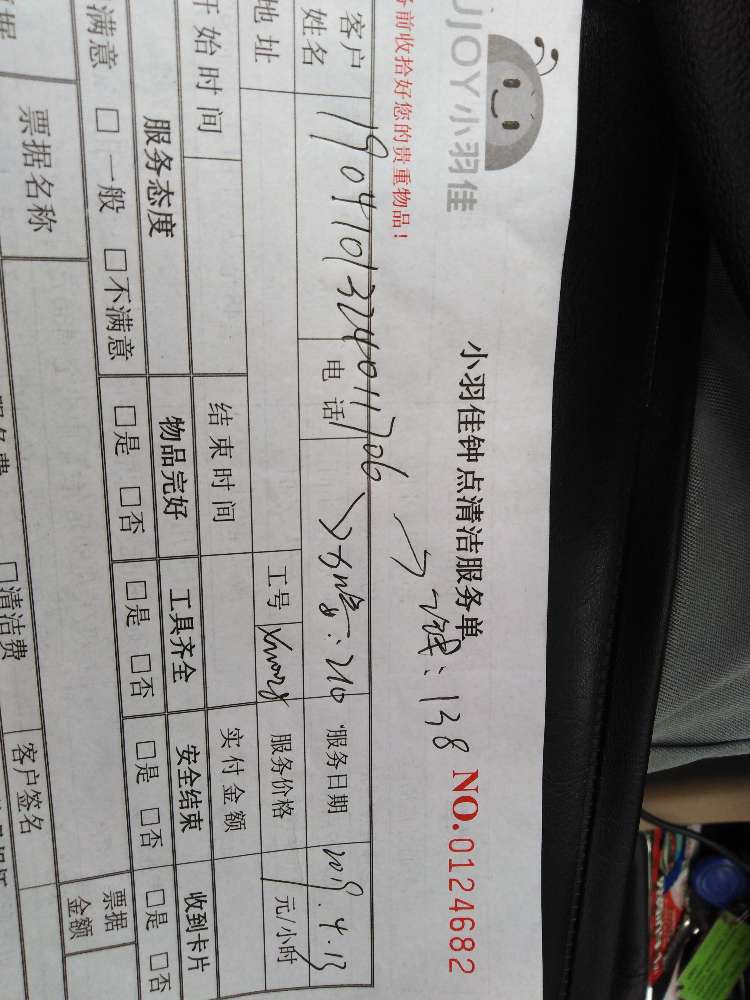 UJOY小羽佳
小羽佳钟点清洁服务单
NO.0124682
务前收拾好您的贵重物品！
138
客户姓名
190410132401706
电话
210
服务日期
2019.4.13
地址
工号
服务价格
元/小时
开始时间
结束时间
实付金额
服务态度
物品完好
工具齐全
安全结束
收到卡片
满意 □ 一般 □不满意
□是 □否
□是 □否
□是 □否
□是 □否
票据名称
票据金额
□清洁费
客户签名